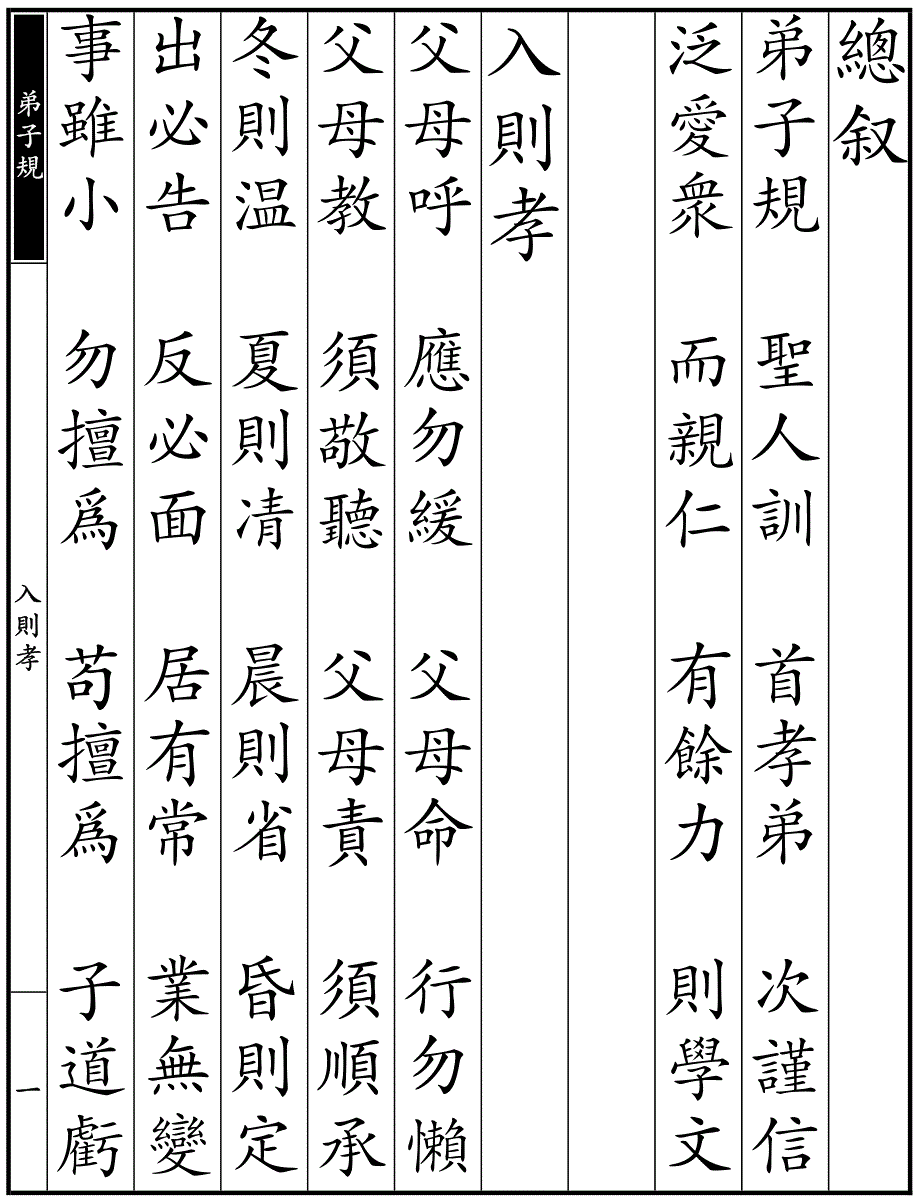 總叙
弟子規 聖人訓 首孝弟 次謹信
泛愛眾 而親仁 有餘力 則學文
入則孝
父母呼 應勿緩 父母命 行勿懶
父母教 須敬聽 父母責 須順承
冬則温 夏則凊 晨則省 昏則定
出必告 反必面 居有常 業無變
事雖小 勿擅爲 苟擅爲 子道虧
弟子規
入則孝
一